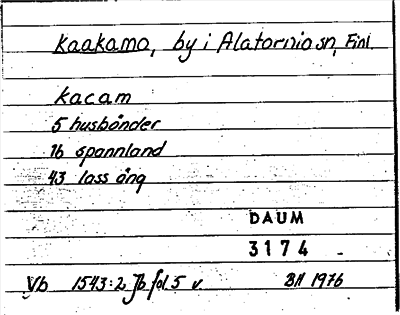 Kaakamo, by i Alatornio sn, Finl.
kacam
5 husbönder
16 spannland
43 lass äng
DAUM
3174
Vb 1543:2 Jb fol 5 v. BH 1976